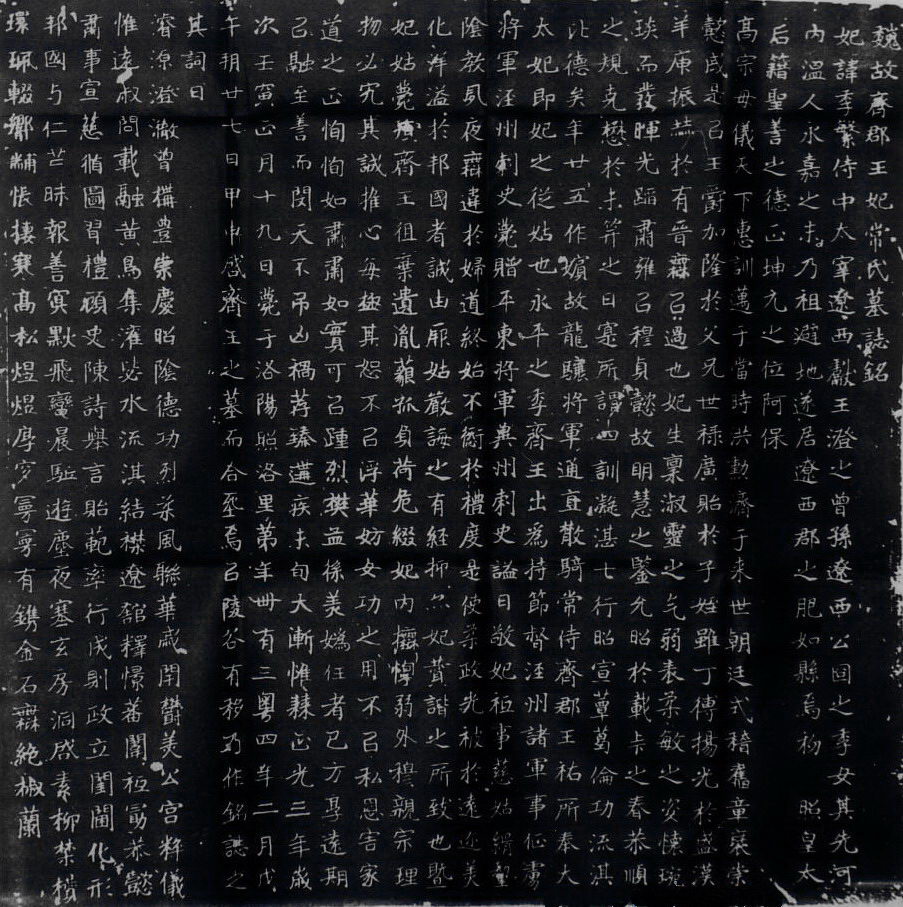 魏故齊郡王妃常氏墓誌銘
妃諱季繁侍中太宰遼西獻王澄之曾孫遼西公囧之季女其先河
內溫人永嘉之末乃祖避地遂居遼西郡之肥如縣焉初 昭皇太
后籍聖善之德正坤元之位阿保
高宗母儀天下惠訓邁于當時洪勳濟于來世朝廷式稽舊章褒崇
懿戚是㠯王爵加隆於父兄世祿廣貽於子姪雖丁傅揚光於盛漢
羊庾振赫於有晉無㠯過也妃生稟淑靈之气弱表柔敏之姿懷琬
琰而發暉光蹈肅雍㠯穆貞懿故明慧之鑒允昭於載卡之春恭順
之規克懋於未筓之日寔所謂四訓凝湛七行昭宣蕈葛倫功流淇
比德矣年廿五作嬪故龍驤將軍通直散騎常侍齊郡王祐所奉太
太妃即妃之從姑也永平之季齊王出為持節督涇州諸軍事征虜
將軍涇州刺史薨贈平東將軍冀州刺史謚曰敬妃袛事慈姑緝釐
陰教夙夜無違於婦道終始不愆於禮度是使柔政光被於遠迩美
化洋溢於邦國者誠由厥姑嚴誨之有經抑亦妃贊諧之所致也暨
妃姑薨殯齊王徂棄遺胤藐孤負荷危綴妃內撫惸弱外穆親宗理
物必究其誠推心每極其恕不㠯浮華妨女功之用不㠯私恩害家
道之正恂恂如肅肅如實可㠯踵烈樊孟徐美媯任者已方享遠期
㠯融至善而閔天不吊凶禍荐臻遘疾未旬大漸惟棘正光三年歲
次壬寅正月十九日薨于洛陽照洛里第年卌有三粵四年二月戊
午朔廿七日甲申啓齊王之墓而合葬焉㠯陵谷有移乃作銘誌之
其詞曰
濬源澄澈曾構豐崇慶昭陰德功烈柔風聯華戚閈欝美公宮粹儀
惟遠叔問載融黃鳥集灌毖水流淇結襟遼舘釋憬蕃闈袛勗恭懿
肅事宣慈循圖習禮顧史陳詩舉言貽範率行成䂓政立閨閫化形
邦國与仁芒昧報善冥默飛鸞晨駈逰塵夜塞玄房洞啓素柳禁櫕
環珮輟響黼悵棲寒高松煜煜厚穸寥寥有鐫金石無絕椒蘭